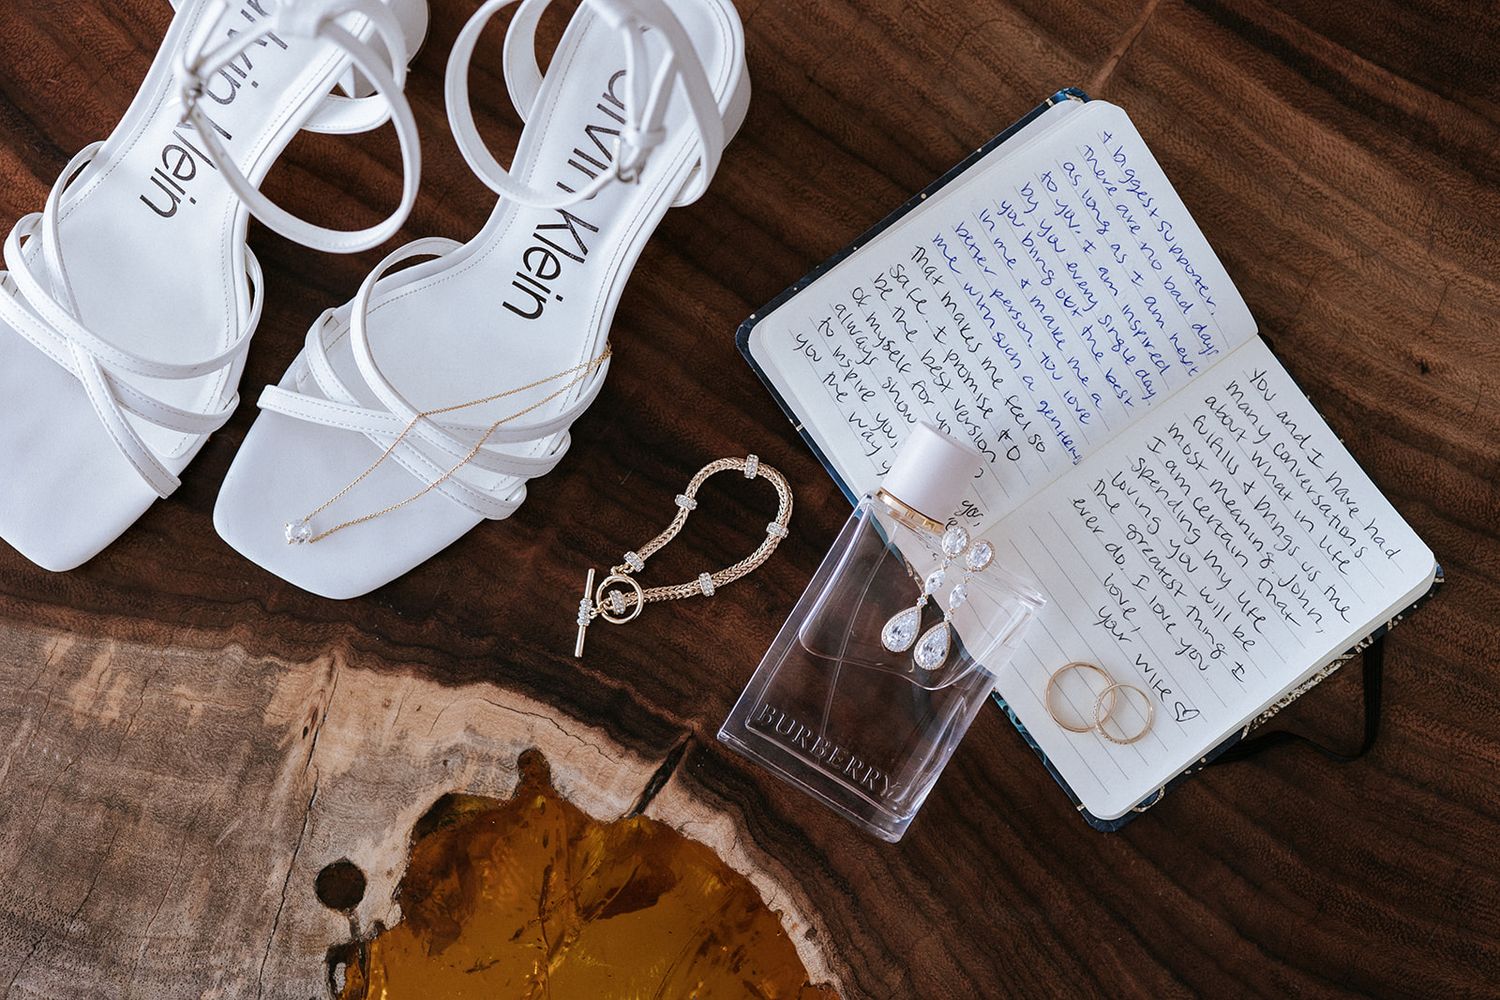 alvin Klein
alvin Klein
& biggest supporter.
There are no bad days
as long as I am next
to you. I am inspired
by you every single day
you bring out the best
in me & make me a
better person. You love
me with such a
that makes me feel so
safe. I promise to
be the best version
of myself for
always show
to inspire you,
You and I have had
many conversations
about what in life
fulfills & brings us the
most meaning. John,
I am certain that
spending my life
loving you will be
the greatest thing I
ever do. I love you.
Love,
your wife ♡
BURBERRY